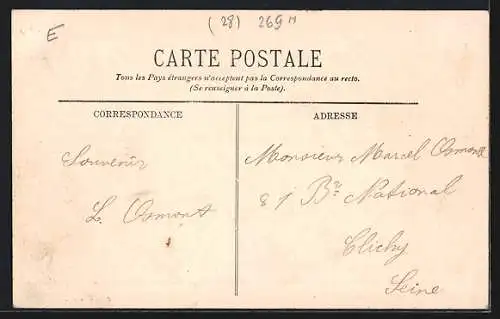 (28) 269 M
E
CARTE POSTALE
Tous les Pays étrangers n'acceptent pas la Correspondance au recto.
(Se renseigner à la Poste).
CORRESPONDANCE
ADRESSE
Souvenir
L. Osmont
Monsieur Marcel Osmont
81 Bd National
Clichy
Seine